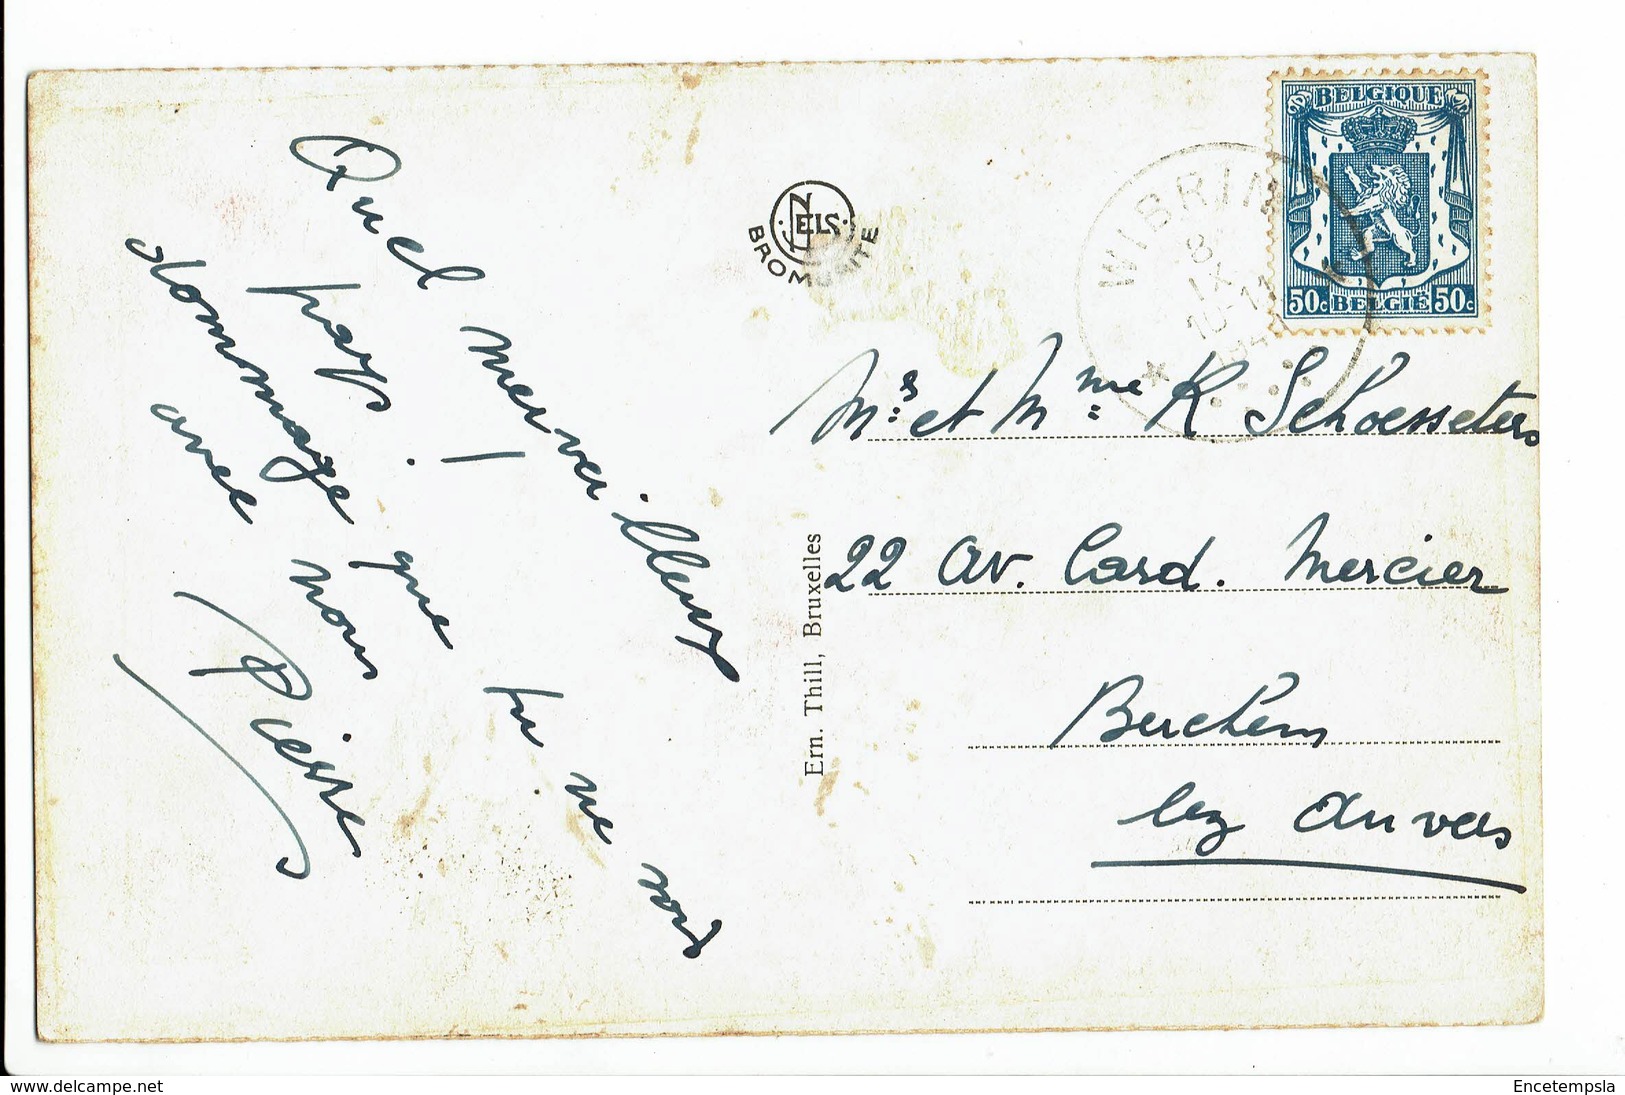 Quel merveilleux
pays !
dommage que tu ne sois
avec nous
Pierre
NELS
BROMURITE
Ern. Thill, Bruxelles
BELGIQUE
50c BELGIE 50c
WIBRIN
8
IX
10-11
Mrs et Mme R Schoesseters
22 Av. Card. Mercier
Berchem
lez Anvers
www.delcampe.net
Encetempsla